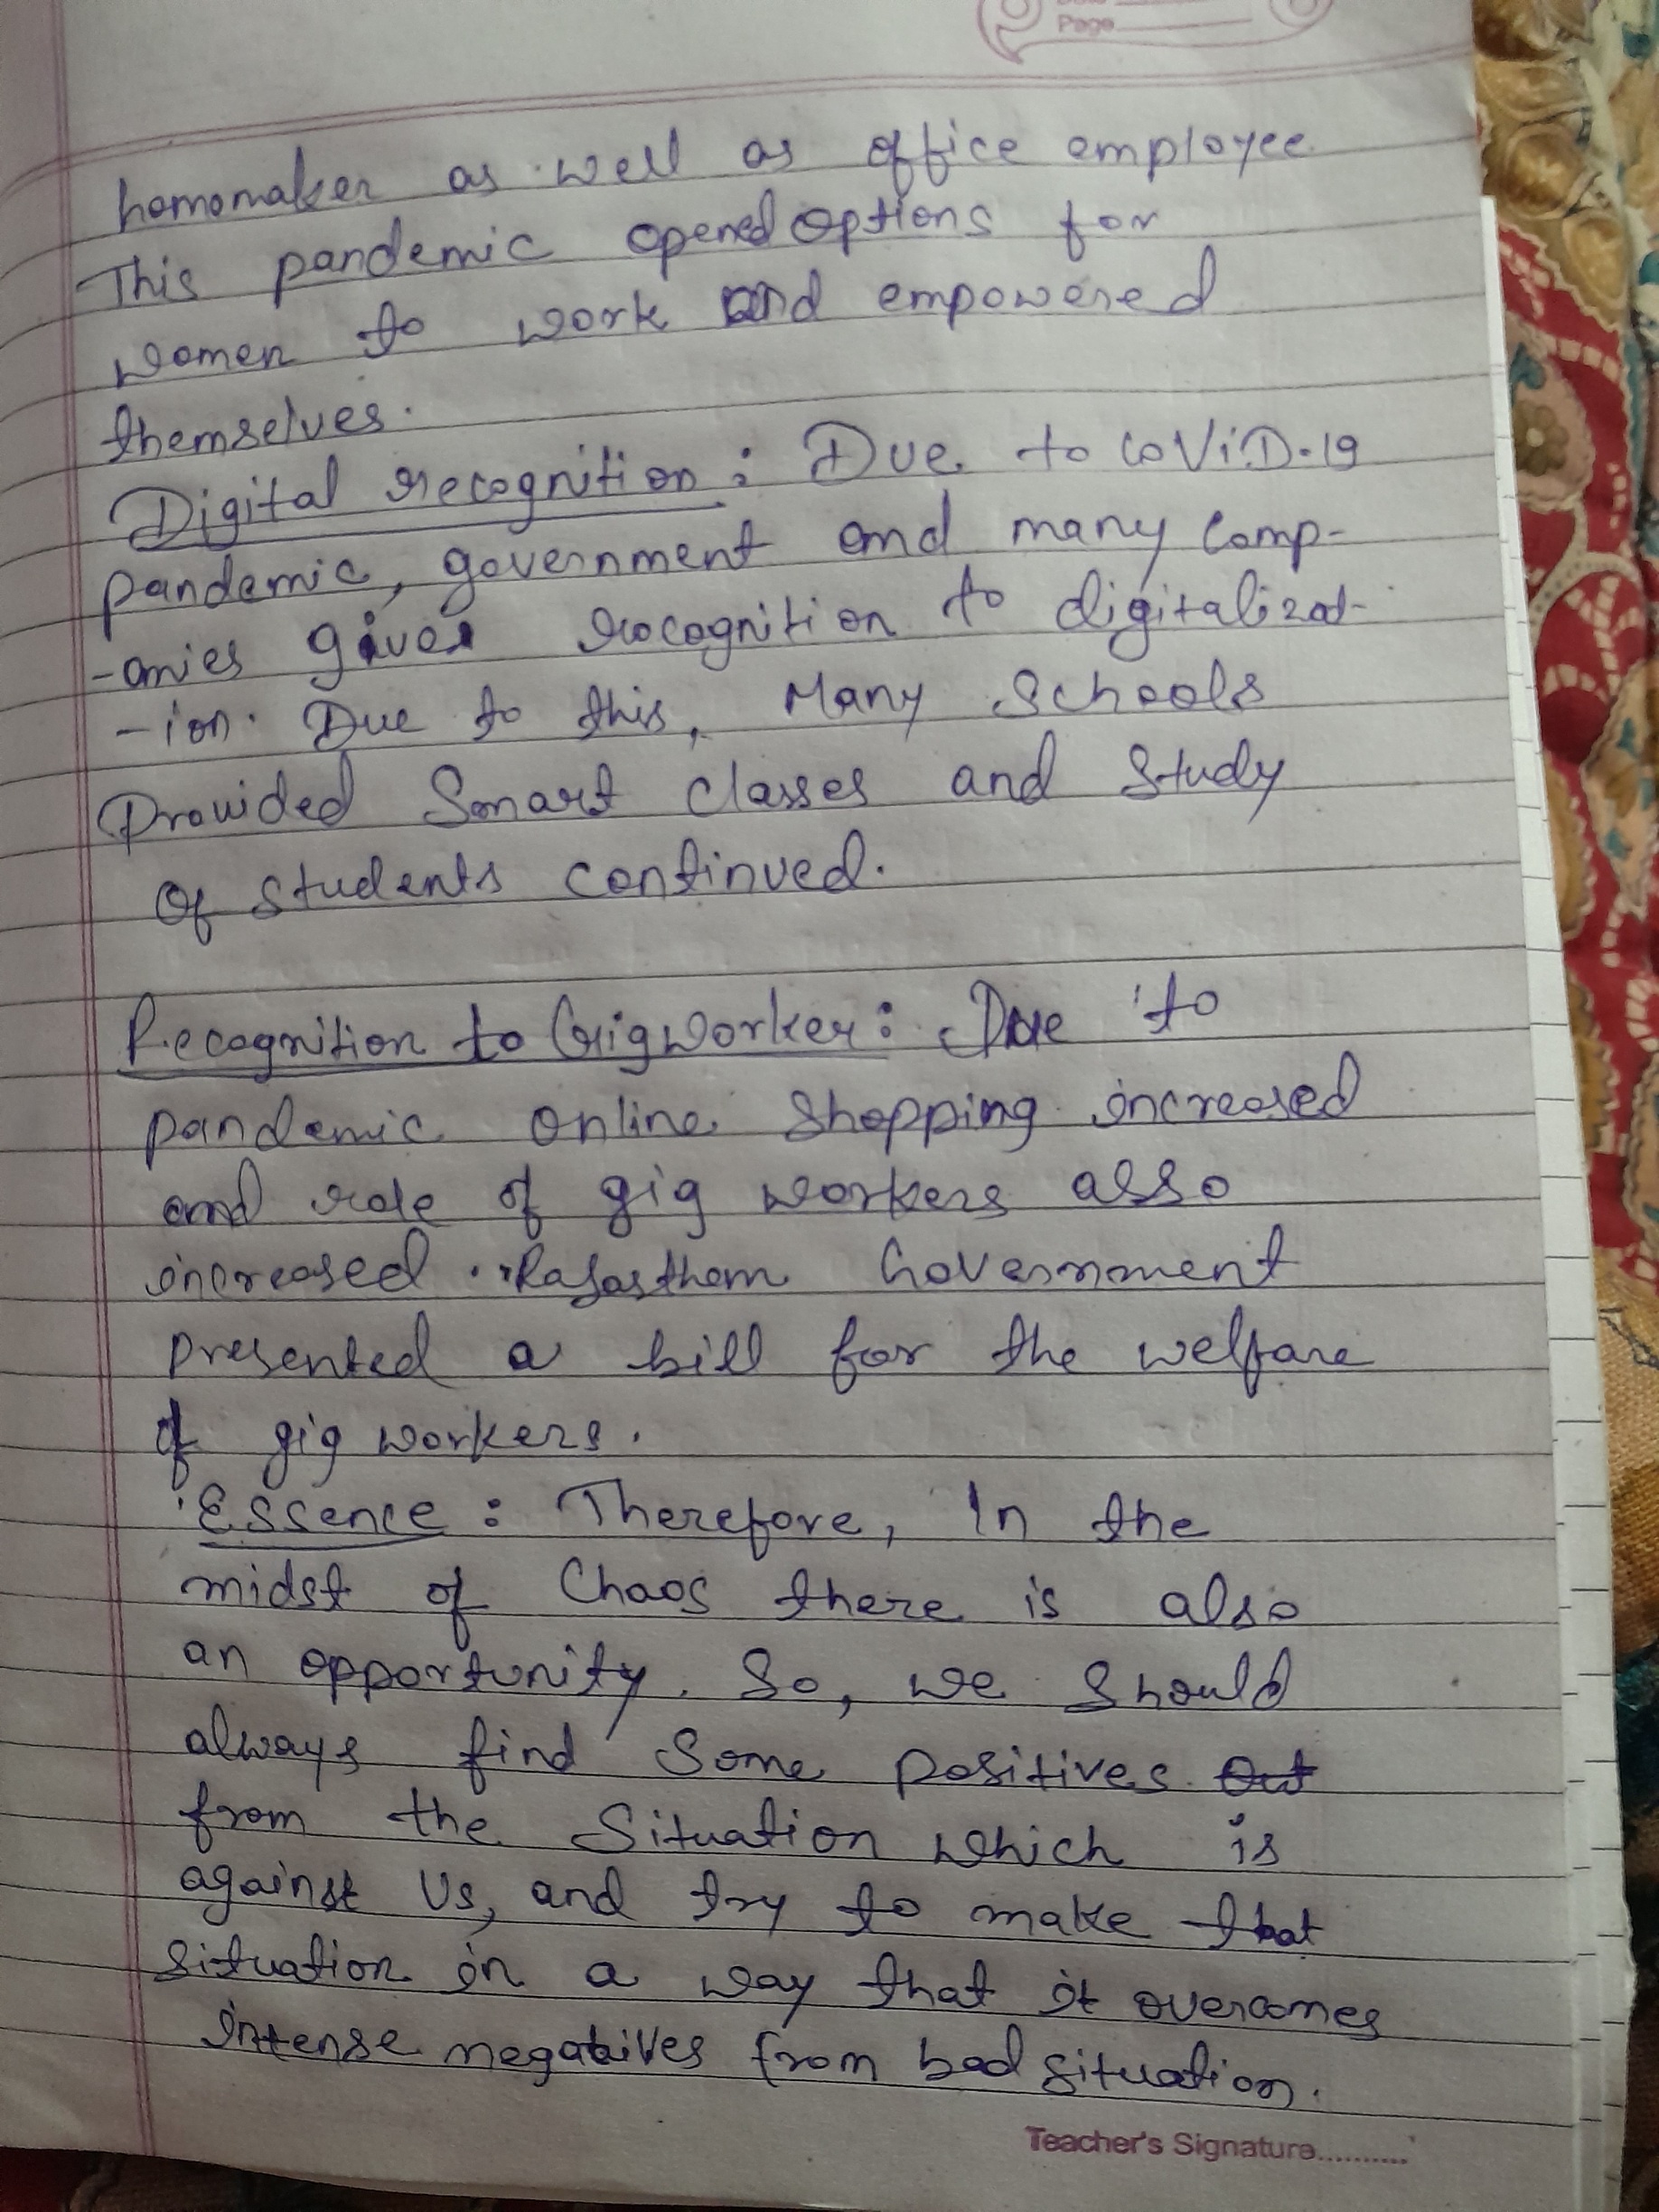 Page
homomaker as well as office employee.
This pandemic opened options for
women to work and empowered
themselves.
Digital recognition : Due to COVID-19
pandemic, government and many comp-
-anies gives recognition to digitalizat-
-ion. Due to this, Many Schools
Provided Smart Classes and Study
Of students continued.
Recognition to Gig worker : Due to
pandemic online Shopping increased
and role of gig workers also
increased. Rajasthan Government
presented a bill for the welfare
of gig workers.
Essence : Therefore, In the
midst of Chaos there is also
an opportunity. So, we should
always find Some positives out
from the Situation which is
against Us, and try to make that
situation in a way that it overcomes
intense negatives from bad situation.
Teacher's Signature..........